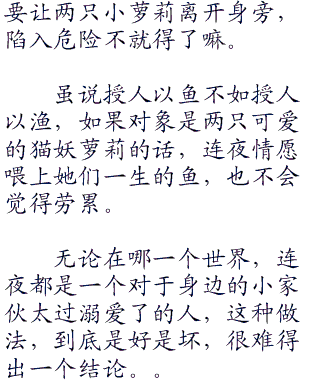 要让两只小萝莉离开身旁，
陷入危险不就得了嘛。
虽说授人以鱼不如授人
以渔，如果对象是两只可爱
的猫妖萝莉的话，连夜情愿
喂上她们一生的鱼，也不会
觉得劳累。
无论在哪一个世界，连
夜都是一个对于身边的小家
伙太过溺爱了的人，这种做
法，到底是好是坏，很难得
出一个结论。。